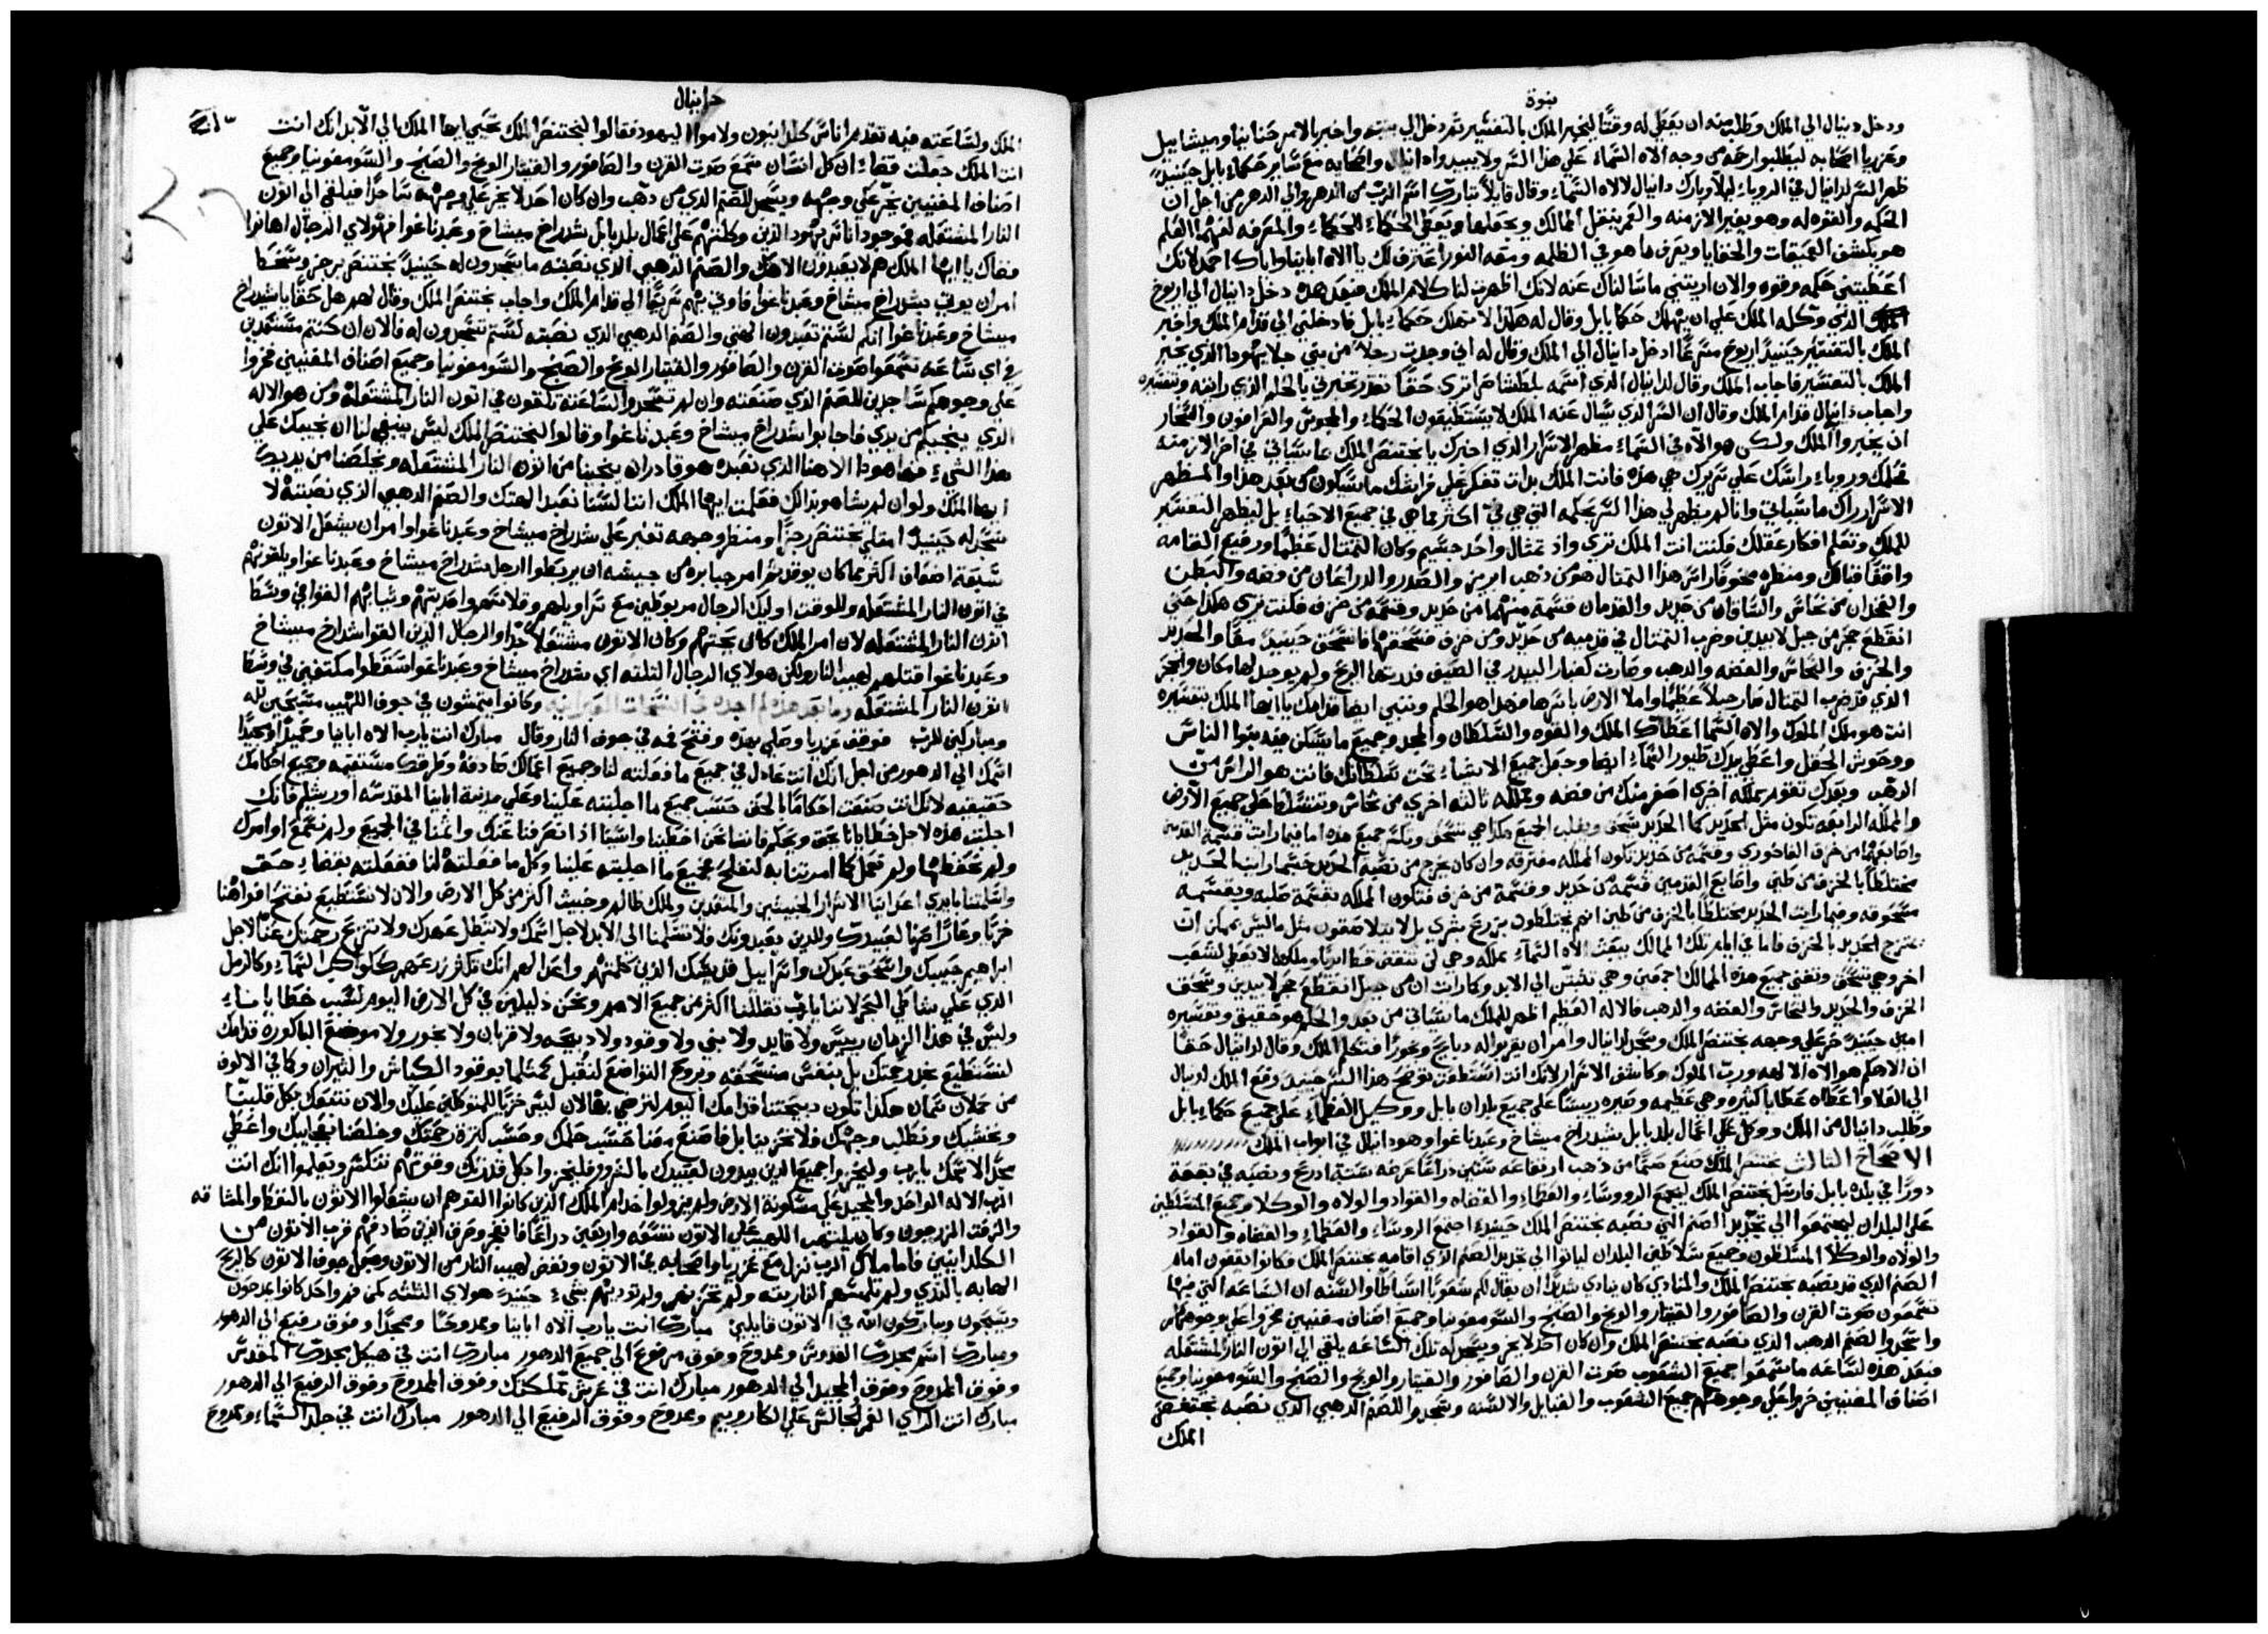 نبوة
ودخل دنيال الي الملك وطلب منه ان يعطي له وقتًا ليخبر الملك بالتفسير ثم دخل الي بيته واخبر بالامر حنانيا وميشاييل
وعزريا اصحابه ليطلبوا رحمه من وجه الاه السماء علي هذا السر ولا يبيدوا دانيال واصحابه مع ساير حكماء بابل حينيدٍ
ظهر السر لدانيال في الروياء ليلًا وبارك دانيال لالاه السماء وقال قايلًا تبارك اسم الرب من الدهر والي الدهر من اجل ان
الحكمه والقوه له وهو يغير الازمنه والقمر ينقل الممالك ويجعلها ويعطي الحكماء الحكماء والمعرفه لفهما العلم
هو يكشف العميقات والخفايا ويعرف ما هو في الظلمه ومعه النور اعترف لك يا الاه ابايتا واياك احمد لانك
اعطيتني حكمه وقوه والان اريتني ما سالناك عنه لانك اظهرت لنا كلام الملك فبعد هذه دخل دانيال الي اريوخ
الذي وكله الملك علي ان يهلك حكما بابل وقال له هكذا لا تهلك حكماء بابل فادخلني الي قدام الملك واخبر
الملك بالتفسير حينيدٍ اريوخ متسرعًا ادخل دانيال الي الملك وقال له اني وجدت رجلًا من بني جلا يهودا الذي يخبر
الملك بالتفسير فاجاب الملك وقال لدانيال الذي اسمه بلطشاصر اترى حقًا تقدر تخبرني بالحلم الذي رايته وتفسيره
واجاب دانيال قدام الملك وقال ان السر الذي يسال عنه الملك لا يستطيعون الحكماء والمجوس والعرافون والسحار
ان يخبروا الملك ولكن هو الاه في السماء مظهر الاسرار الذي اخبرك يا بختنصر الملك عما سياتي في اخر الازمنه
حلمك وروياء راسك علي سريرك هي هذه فانت الملك بدات تفكر علي فراشك ما سيكون من بعد هذا والمظهر
الاسرار راك ما سياتي وانا لم يظهر لي هذا السر بحكمه التي هي في اكثر مما هي في جميع الاحياء بل ليظهر التفسير
للملك وتعلم افكار عقلك فكنت انت الملك ترى واذ تمثال واحد جسيم وكان التمثال عظيمًا ورفيع القامه
واقفًا قبالك ومنظره مخوفًا راس هذا التمثال هو من ذهب ابريز والصدر والدراعان من فضه والبطن
والفخدان من نحاس والساقان من حديد والقدمان قسمة منهما من حديد وقسمة من خزف فكنت ترى هكذا حتى
انقطع حجر من جبل لا بيدين وضرب التمثال في قدميه من حديد ومن خزف فسحقهما فانسحق حينيدٍ معًا والحديد
والخزف والنحاس والفضه والدهب وصارت كغبار البيدر في الصيف فذرتها الريح ولم يوجد لها مكان والحجر
الذي قد ضرب التمثال صار جبلًا عظيمًا واملا الارض باسرها فهذا هو الحلم ونبني ايضا قدامك يا ايها الملك بتفسيره
انت هو ملك الملوك والاه السما اعطاك الملك والقوه والسلطان والمجد وجميع ما يسكن فيه بنوا الناس
ووحوش الحقل واعطي بيدك طيور السماء ايضا وجعل جميع الاشياء تحت سلطانك فانت هو الراس من
الدهب وبعدك تقوم مملكه اخرى اصغر منك من فضه ومملكه ثالثه اخري من نحاس وتتسلط علي جميع الارض
والمملكه الرابعه تكون مثل الحديد كما الحديد يسحق ويغلب الجميع هكذا هي تسحق وتكسر جميع هذه اما فيما رايت قسمة القدمين
واصابعهما من خزف الفاخوري وقسمة من حديد تكون المملكه مفترقه وان كان يخرج من نصبة الحديد حسبما رايت الحديد
مختلطًا بالخزف من طين واصابع القدمين قسمة من حديد وقسمة من خزف فتكون المملكه بقسمة صلبه وبقسمه
مسحوقه وفيما رايت الحديد مختلطًا بالخزف من طين انهم يختلطون بزرع بشري بل لا يتلاصقون مثل ما ليس يمكن ان
يمتزج الحديد بالخزف فاما في ايام تلك الممالك يبعث الاه السماء مملكه وهي لن تنتقض قط ابديا وملكها لا يعطي لشعب
اخر وهي تسحق وتفني جميع هذه الممالك اجمعين وهي تثبت الي الابد وكما رايت ان من جبل انقطع حجر لا بيدين وسحق
الخزف والحديد والنحاس والفضه والدهب فالاله العظيم اظهر للملك ما سياتي من بعد والحلم هو حقيق وتفسيره
امين حينيدٍ خر علي وجهه بختنصر الملك وسجد لدانيال وامر ان يقربوا له دبايح وبخورًا فتكلم الملك وقال لدانيال حقًا
ان الاهكم هو الاه الالهه ورب الملوك وكاشف الاسرار لانك انت استطعت توضح هذا السر حينيدٍ رفع الملك لدنيال
الي العلا واعطاه عطايا كثيره وهي عظيمه وصيره رييسًا علي جميع بلدان بابل ووكيل العظماء علي جميع حكماء بابل
وطلب دانيال من الملك ووكل علي اعمال بلد بابل بشدراخ ميشاخ وعبدناغوا وهو دانيال في ابواب الملك
الاصحاح الثالث بختنصر الملك صنع صنمًا من ذهب ارتفاعه ستين دراعًا عرضه سته ادرع ونصبه في بقعة
دورًا في بلده بابل فارسل بختنصر الملك ليجمع الروساء والعظماء والقضاه والقواد والولاه والوكلا وجميع المسلطين
علي البلدان ليجتمعوا الي تجديد الصنم التي نصبه بختنصر الملك حينيدٍ اجتمع الروساء والعظماء والقضاه والقواد
والولاه والوكلا المسلطون وجميع سلاطين البلدان لياتوا الي تجديد الصنم الذي اقامه بختنصر الملك فكانوا يقفون امام
الصنم الذي قد نصبه بختنصر الملك والمنادي كان ينادي شديدًا ان يقال لكم شعوبًا اسباطا والسنه ان الساعه التي فيها
تسمعون صوت القرن والصافور والقيتار والونج والصنج والسومفونيا وجميع اصناف مغنيين خروا علي وجوهكم
واسجدوا الصنم الدهب الذي نصبه بختنصر الملك وان كان احد لا يخر ويسجد له تلك الساعه يلقي الي اتون النار المشتعله
فبعد هذه لساعه ما سمعوا جميع الشعوب صوت القرن والصافور والقيتار والونج والصنج والسومفونيا وجميع
اصناف المغنيين خروا علي وجوههم جميع الشعوب والقبايل والالسنه وسجدوا للصنم الدهبي الذي نصبه بختنصر
الملك
دانيال
الملك ولساعته فيه تقدم اناس كلدانيون ولاموا اليهود فقالوا لبختنصر الملك تحيي ايها الملك الي الابد انك انت
انت الملك جعلت قضاء ان كل انسان سمع صوت القرن والصافور والقيتار الونج والصنج والسومفونيا وجميع
اصناف المغنيين يخر علي وجهه ويسجد للصنم الذي من دهب وان كان احد لا يخر علي وجهه ساجدًا فيلقي الي اتون
النار المشتعله فموجود اناس يهود الذين وكلتهم علي اعمال بلد بابل شدراخ ميشاخ وعبدناغوا فهولاي الرجال اهانوا
قضاك يا ايها الملك هم لا يعبدون الاهك والصنم الدهبي الذي نصبته ما يسجدون له حينيدٍ بختنصر برجز وسخط
امر ان يوتي بشدراخ ميشاخ وعبدناغوا فاوتي بهم سريعًا الي قدام الملك واجاب بختنصر الملك وقال لهم هل حقًا يا شدراخ
ميشاخ وعبدناغوا انكم لستم تعبدون الهتي والصنم الدهبي الذي نصبته لستم تسجدون له فالان ان كنتم مستعدين
في اي ساعه تسمعوا صوت القرن والصافور والقيتار الونج والصنج والسومفونيا وجميع اصناف المغنيين فخروا
علي وجوهكم ساجدين للصنم الذي صنعته وان لم تسجدوا لساعته تلقون في اتون النار المشتعله ومن هو الاله
الذي ينجيكم من يدي فاجابوا شدراخ ميشاخ وعبدناغوا وقالوا لبختنصر الملك ليس ينبغي لنا ان نجيبك علي
هذا الشيء فها هوذا الاهنا الذي نعبده هو قادر ان ينجينا من اتون النار المشتعله ويخلصنا من يديك
ايها الملك ولو ان لم يشا هو بذالك فعلمت ايها الملك اننا لسنا نعبد الهتك والصنم الدهبي الذي نصبته لا
نسجد له حينيدٍ امتلي بختنصر رجزًا ومنظر وجهه تغير علي شدراخ ميشاخ وعبدناغوا وامر ان يشعل الاتون
سبعة اضعاف اكثر مما كان يوقد ثم امر جبابره من جيشه ان يربطوا ارجل شدراخ ميشاخ وعبدناغوا ويلقونهم
في اتون النار المشتعله وللوقت اوليك الرجال مربوطين مع سراويلهم وقلانسهم واحديتهم وثيابهم القوا في وسط
اتون النار المشتعله لان امر الملك كان يحتهم وكان الاتون مشتعلًا جدًا والرجال الذين القوا شدراخ ميشاخ
وعبدناغوا قتلهم لهيب النار ولكن هولاي الرجال الثلثه اي شدراخ ميشاخ وعبدناغوا سقطوا مكتفين في وسط
اتون النار المشتعله وما بعد هذا لم اجده في النسخات العبرانيه وكانوا يتمشون في جوف اللهيب مسبحين لله
ومباركين للرب فوقف عزريا وصلي بهذه وفتح فمه في جوف النار وقال مبارك انت يا رب الاه ابايتا وحميد وممجد
اسمك الي الدهور من اجل انك انت عادل في جميع ما فعلته لنا وجميع اعمالك صادقة وطرقك مستقيمه وجميع احكامك
حقيقيه لانك انت صنعت احكامًا بالحق حسب جميع ما اجلبته علينا وعلي مدينة ابايتا المقدسه اورشليم فانك
اجلبت هذه لاجل خطايانا بحق وبحكم فاننا نحن اخطينا واسينا اذ انصرفنا عنك واثمنا في الجميع ولم نسمع اوامرك
ولم نحفظها ولم نعمل كما امرتنا به لنفلح فجميع ما اجلبته علينا وكل ما فعلته لنا ففعلته بقضاء حق
واسلمتنا بايدي اعداينا الاشرار الخبيثين والمنعدين ولملك ظالم وخبيث اكثر من كل الارض والان لا نستطيع نفتح افواهنا
خزيا وعارًا صرنا لعبيدك وللذين يعبدونك فلا تسلمنا الي الابد لاجل اسمك ولا تبطل عهدك ولا تنزع رحمتك عنا لاجل
ابراهيم حبيبك واسحق عبدك واسراييل قديسك الذين كلمتهم واعدًا لهم انك تكثر زرعهم ككواكب السماء وكالرمل
الذي علي شاطي البحر لاننا يا رب تقللنا اكثر من جميع الامم ونحن ذليلين في كل الارض اليوم لسبب خطايانا
وليس في هذا الزمان رييس ولا قايد ولا نبي ولا وقود ولا دبيحه ولا قربان ولا بخور ولا موضع الباكوره قدامك
لنستطيع نجد رحمتك بل بنفس منسحقه وبروح التواضع لنقبل كمثلما بوقود الكباش والثيران وكما في الالوف
من حملان سمان هكذا تكون دبيحتنا قدامك اليوم لترضي بها لان ليس خزيا للمتوكلين عليك والان نتبعك بكل قلبنا
ونخشيك ونطلب وجهك فلا تخزينا بل فاصنع معنا حسب حلمك وحسب كثرة رحمتك وخلصنا بعجايبك واعطي
مجدًا لاسمك يا رب وليخزوا جميع الذين يبدون لعبيدك بالشرور فليخزوا بكل قدرتك وقوتهم تنكسر ويعلموا انك انت
الرب الاله الواحد والمجيد علي مسكونة الارض ولم يزولوا خدام الملك الذين كانوا القوهم ان يشعلوا الاتون بالنفط والمشاقه
والزفت الزرجون وكان يلتهب اللهيب علي الاتون تسعه واربعين دراعًا فانفجر وحرق الذين صادفهم قرب الاتون من
الكلدانيين فاما ملاك الرب نزل مع عزريا واصحابه في الاتون ونفض لهيب النار من الاتون وجعل جوف الاتون كالريح
الهابه بالندي ولم تلمسهم النار بته ولم تحزنهم ولم توديهم بشيء حينيدٍ هولاي الثلثه كمن فم واحد كانوا يمدحون
ويسبحون ويباركون الله في الاتون قايلين مبارك انت يا رب الاه ابايتا وممدوحًا وممجدًا وفوق رفيع الي الدهور
ومبارك اسم مجدك القدوس وممدوح وفوق مرفوع الي جميع الدهور مبارك انت في هيكل مجدك المقدس
وفوق الممدوح وفوق المجيد الي الدهور مبارك انت في عرش مملكتك وفوق الممدوح وفوق الرفيع الي الدهور
مبارك انت الذي الغمر الجالس علي الكاروبيم وممدوح وفوق الرفيع الي الدهور مبارك انت في جلد السماء وممدوح